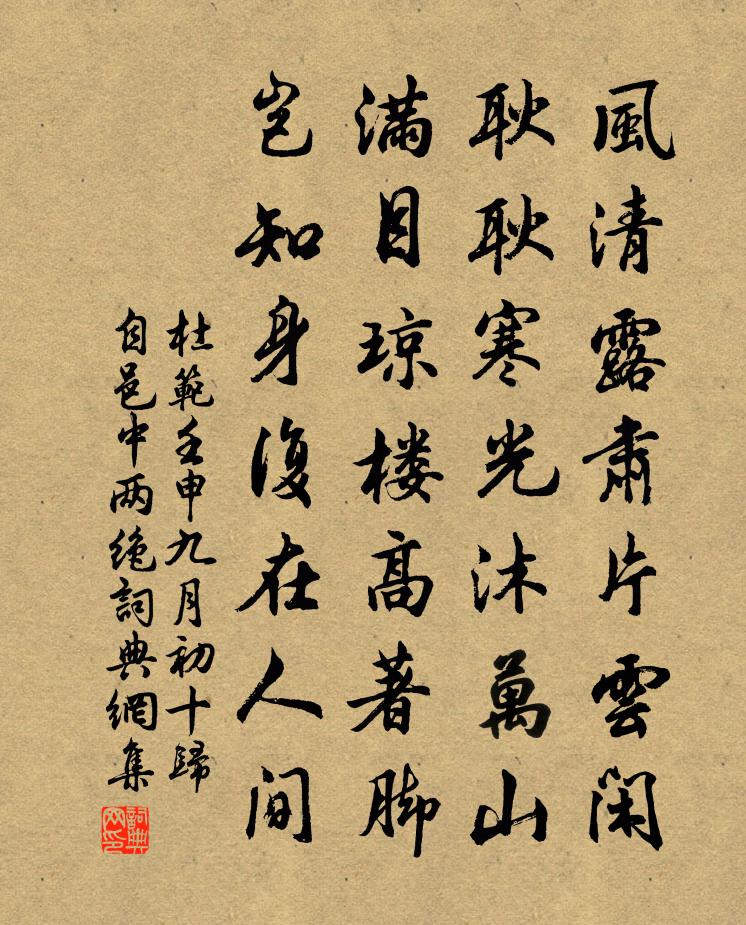 風清露肅片雲閑
耿耿寒光沐萬山
滿目琼楼高著脚
岂知身復在人间
杜範壬申九月初十歸
自邑中两绝詞典網集
詞典
网印